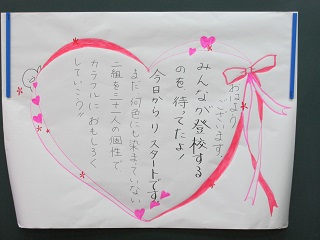 おはよう
ございます!
みんなが登校する
のを待ってたよ!
今日からリスタートです
まだ何色にも染まっていない
二組を三十一人の個性で
カラフルにおもしろく
していこう!!